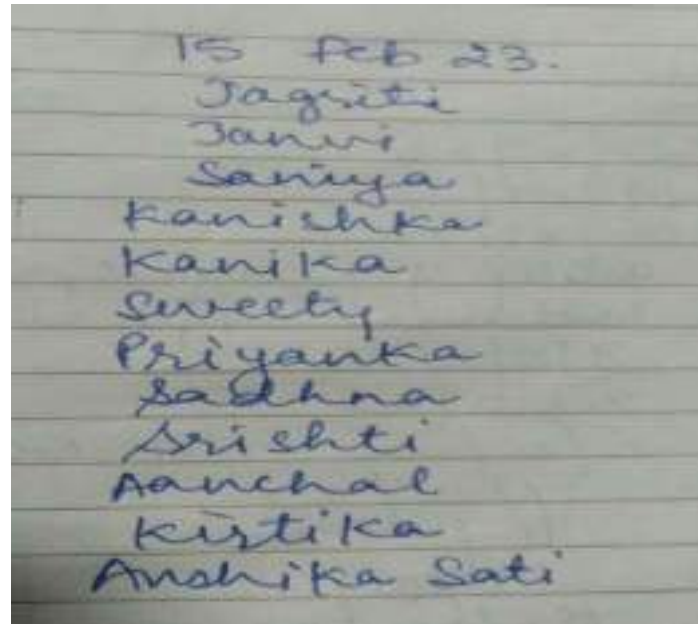 15 Feb 23.
Jagriti
Janvi
Saniya
Kanishka
Kanika
Sweety
Priyanka
Sadhna
Srishti
Aanchal
Kirtika
Anshika Sati